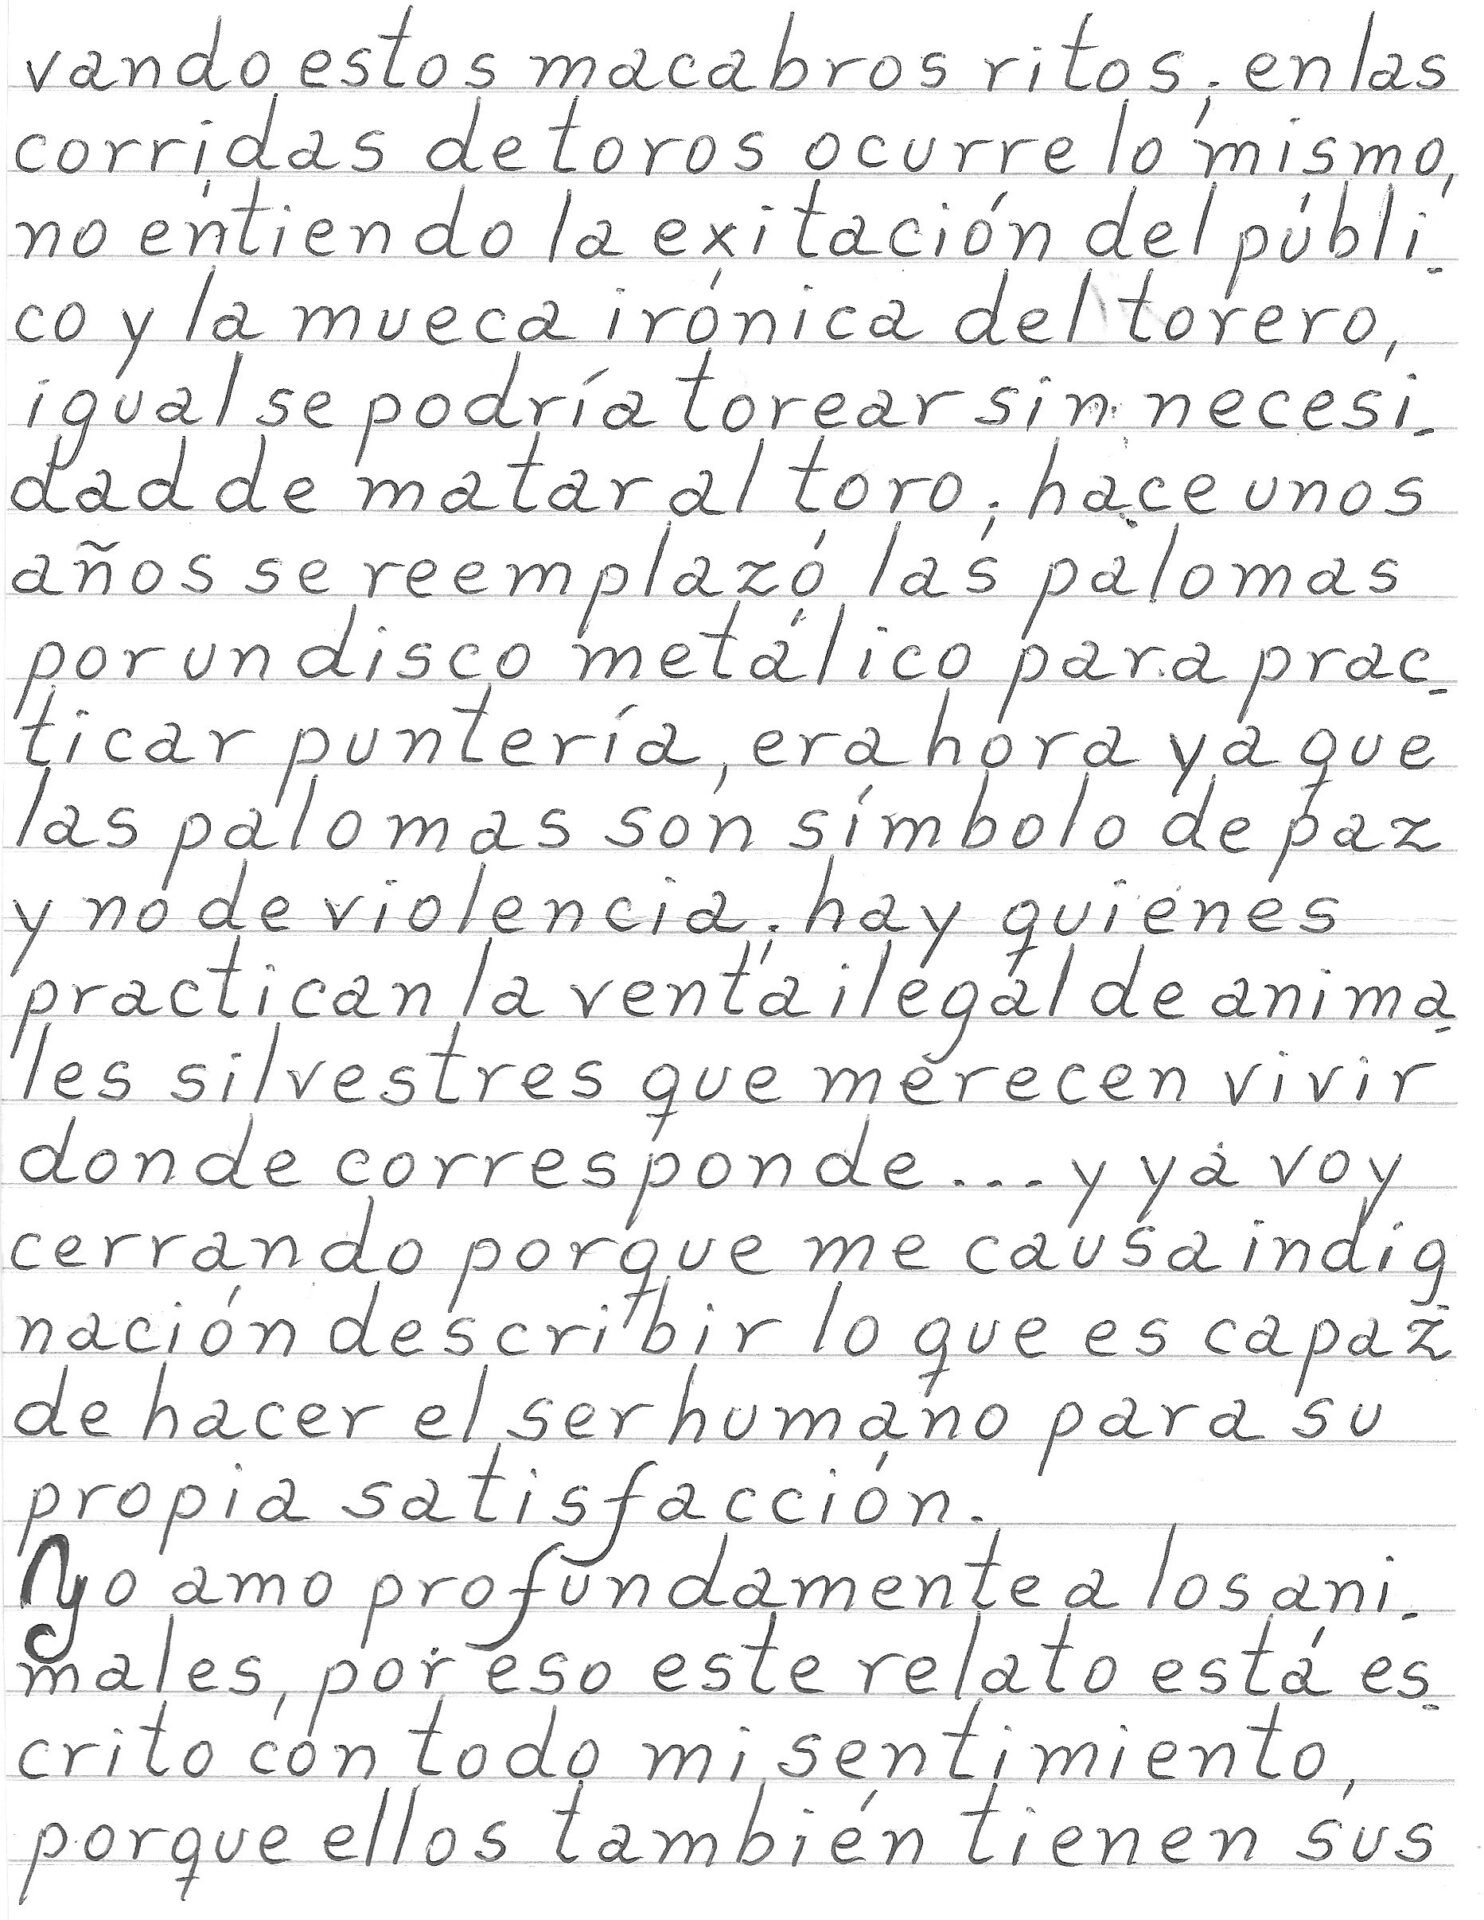 vando estos macabros ritos; en las
corridas de toros ocurre lo mismo,
no entiendo la exitación del públi-
co y la mueca irónica del torero,
igual se podría torear sin necesi-
dad de matar al toro; hace unos
años se reemplazó las palomas
por un disco metálico para prac-
ticar puntería, era hora ya que
las palomas son símbolo de paz
y no de violencia; hay quienes
practican la venta ilegal de anima-
les silvestres que merecen vivir
donde corresponde... y ya voy
cerrando porque me causa indig
nación describir lo que es capaz
de hacer el ser humano para su
propia satisfacción.
Yo amo profundamente a los ani-
males, por eso este relato está es-
crito con todo mi sentimiento,
porque ellos también tienen sus